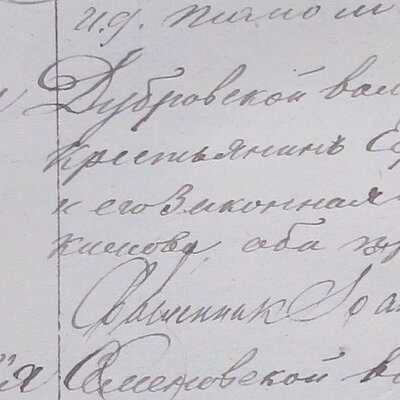 и.д.
Дубровской вол
крестьянинъ Е
и его законная
кимова, оба пр
Священник Іоа
Семеновской во